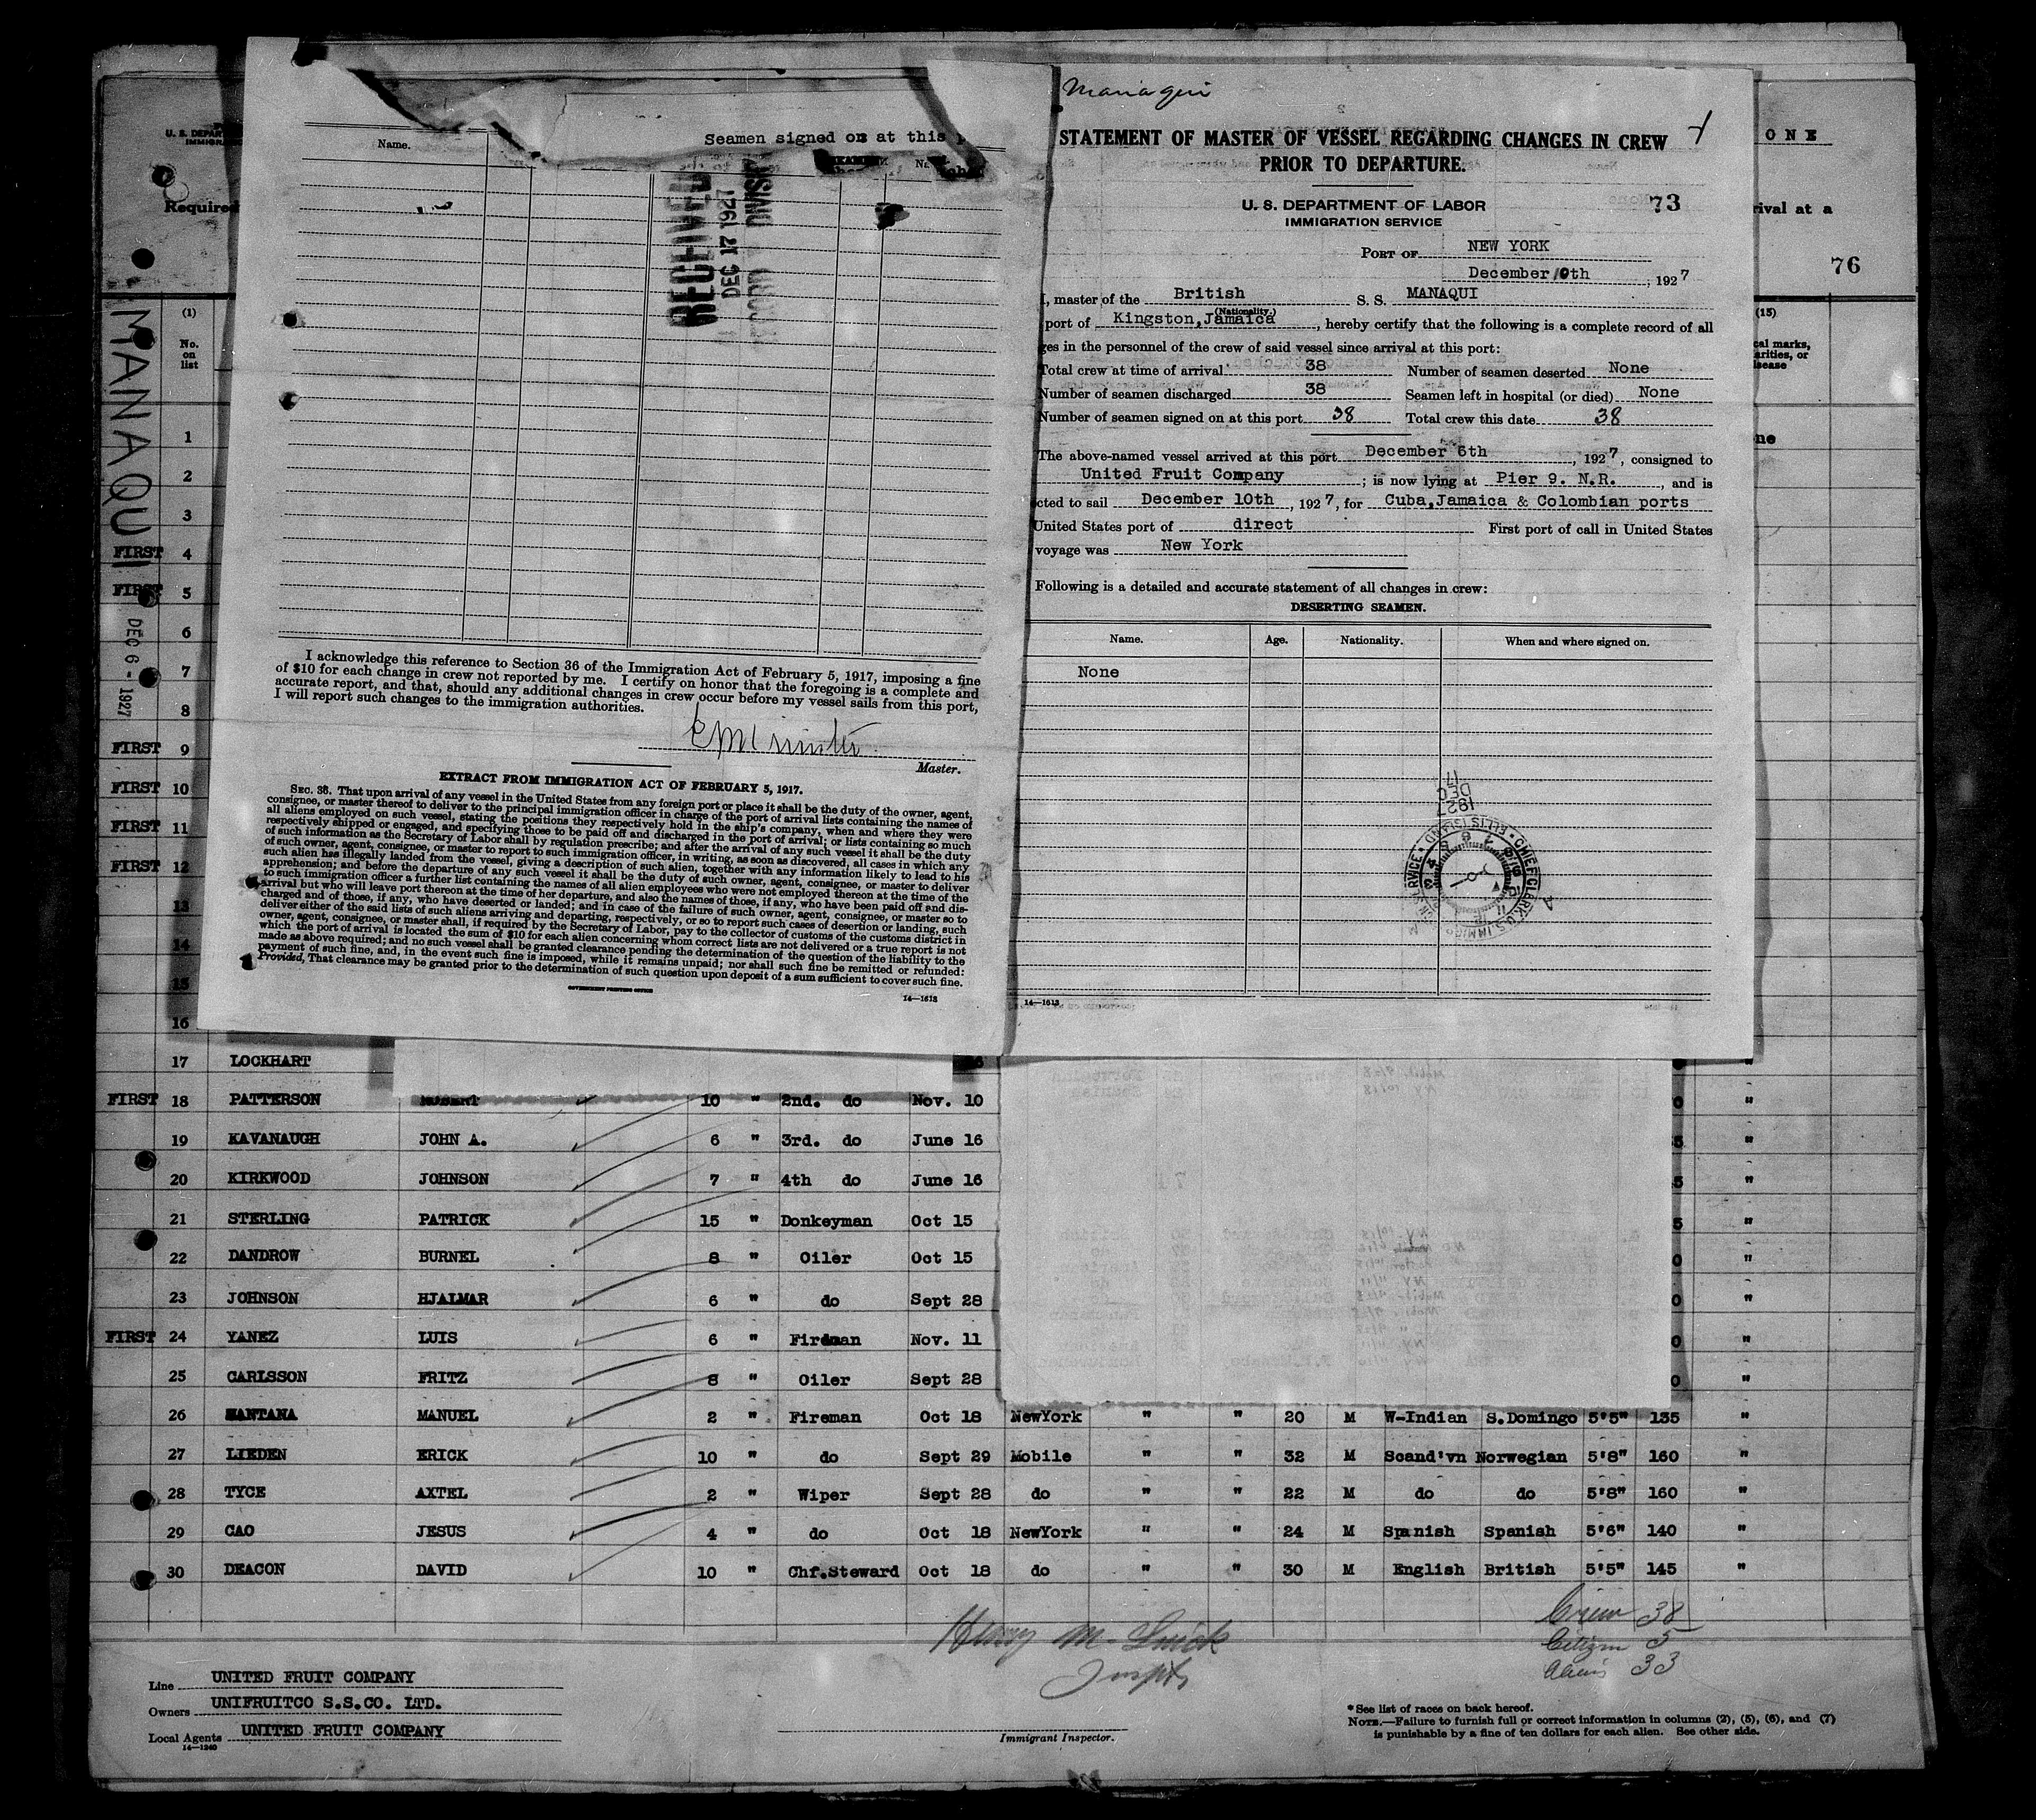 Managui
Seamen signed on at this
Name.
RECEIVED
DEC 17 1927
RECORD DIVISI
I acknowledge this reference to Section 36 of the Immigration Act of February 5, 1917, imposing a fine
of $10 for each change in crew not reported by me. I certify on honor that the foregoing is a complete and
accurate report, and that, should any additional changes in crew occur before my vessel sails from this port,
I will report such changes to the immigration authorities.
Master.
EXTRACT FROM IMMIGRATION ACT OF FEBRUARY 5, 1917.
SEC. 36. That upon arrival of any vessel in the United States from any foreign port or place it shall be the duty of the owner, agent,
consignee, or master thereof to deliver to the principal immigration officer in charge of the port of arrival lists containing the names of
all aliens employed on such vessel, stating the positions they respectively hold in the ship's company, when and where they were
respectively shipped or engaged, and specifying those to be paid off and discharged in the port of arrival; or lists containing so much
of such information as the Secretary of Labor shall by regulation prescribe; and after the arrival of any such vessel it shall be the duty
of such owner, agent, consignee, or master to report to such immigration officer, in writing, as soon as discovered, all cases in which any
such alien has illegally landed from the vessel, giving a description of such alien, together with any information likely to lead to his
apprehension; and before the departure of any such vessel it shall be the duty of such owner, agent, consignee, or master to deliver
to such immigration officer a further list containing the names of all alien employees who were not employed thereon at the time of the
arrival but who will leave port thereon at the time of her departure, and also the names of those, if any, who have been paid off and dis-
charged and of those, if any, who have deserted or landed; and in case of the failure of such owner, agent, consignee, or master so to
deliver either of the said lists of such aliens arriving and departing, respectively, or so to report such cases of desertion or landing, such
owner, agent, consignee, or master shall, if required by the Secretary of Labor, pay to the collector of customs of the customs district in
which the port of arrival is located the sum of $10 for each alien concerning whom correct lists are not delivered or a true report is not
made as above required; and no such vessel shall be granted clearance pending the determination of the question of the liability to the
payment of such fine, and, in the event such fine is imposed, while it remains unpaid; nor shall such fine be remitted or refunded:
Provided, That clearance may be granted prior to the determination of such question upon deposit of a sum sufficient to cover such fine.
GOVERNMENT PRINTING OFFICE
14—1613
STATEMENT OF MASTER OF VESSEL REGARDING CHANGES IN CREW
PRIOR TO DEPARTURE.
U. S. DEPARTMENT OF LABOR
IMMIGRATION SERVICE
73
PORT OF NEW YORK
December 10th, 1927
I, master of the British S. S. MANAQUI
(Nationality.)
port of Kingston, Jamaica, hereby certify that the following is a complete record of all
ges in the personnel of the crew of said vessel since arrival at this port:
Total crew at time of arrival 38 Number of seamen deserted None
Number of seamen discharged 38 Seamen left in hospital (or died) None
Number of seamen signed on at this port 38 Total crew this date 38
The above-named vessel arrived at this port December 6th, 1927, consigned to
United Fruit Company; is now lying at Pier 9. N.R., and is
cted to sail December 10th, 1927, for Cuba, Jamaica & Colombian ports
United States port of direct First port of call in United States
voyage was New York
Following is a detailed and accurate statement of all changes in crew:
DESERTING SEAMEN.
Name. Age. Nationality. When and where signed on.
None
17 DEC 1927
CHIEF CLERK, U.S. IMMIGRATION SERVICE ELLIS ISLAND
14—1613
U. S. DEPAR
IMMIGRA
Required
ONE
rival at a
76
(1)
No.
on
list
(15)
cal marks,
arities, or
sease
ne
MANAQUI
DEC 6 - 1927
1
2
3
FIRST 4
FIRST 5
6
7
8
FIRST 9
FIRST 10
FIRST 11
FIRST 12
13
14
15
16
17 LOCKHART
FIRST 18 PATTERSON 10 " 2nd. do Nov. 10 "
19 KAVANAUGH JOHN A. 6 " 3rd. do June 16 "
20 KIRKWOOD JOHNSON 7 " 4th do June 16 "
21 STERLING PATRICK 15 " Donkeyman Oct 15 "
22 DANDROW BURNEL 8 " Oiler Oct 15 "
23 JOHNSON HJALMAR 6 " do Sept 28 "
FIRST 24 YANEZ LUIS 6 " Fireman Nov. 11 "
25 CARLSSON FRITZ 8 " Oiler Sept 28 "
26 SANTANA MANUEL 2 " Fireman Oct 18 NewYork " " 20 M W-Indian S.Domingo 5'5" 135 "
27 LIEDEN ERICK 10 " do Sept 29 Mobile " " 32 M Scand'vn Norwegian 5'8" 160 "
28 TYCE AXTEL 2 " Wiper Sept 28 do " " 22 M do do 5'8" 160 "
29 CAO JESUS 4 " do Oct 18 NewYork " " 24 M Spanish Spanish 5'6" 140 "
30 DEACON DAVID 10 " Chf.Steward Oct 18 do " " 30 M English British 5'5" 145 "
Crew 38
Citizen 5
Aliens 33
Line UNITED FRUIT COMPANY
Owners UNIFRUITCO S.S.CO. LTD.
Local Agents UNITED FRUIT COMPANY
14—1240
Immigrant Inspector.
* See list of races on back hereof.
NOTE.—Failure to furnish full or correct information in columns (2), (5), (6), and (7)
is punishable by a fine of ten dollars for each alien. See other side.